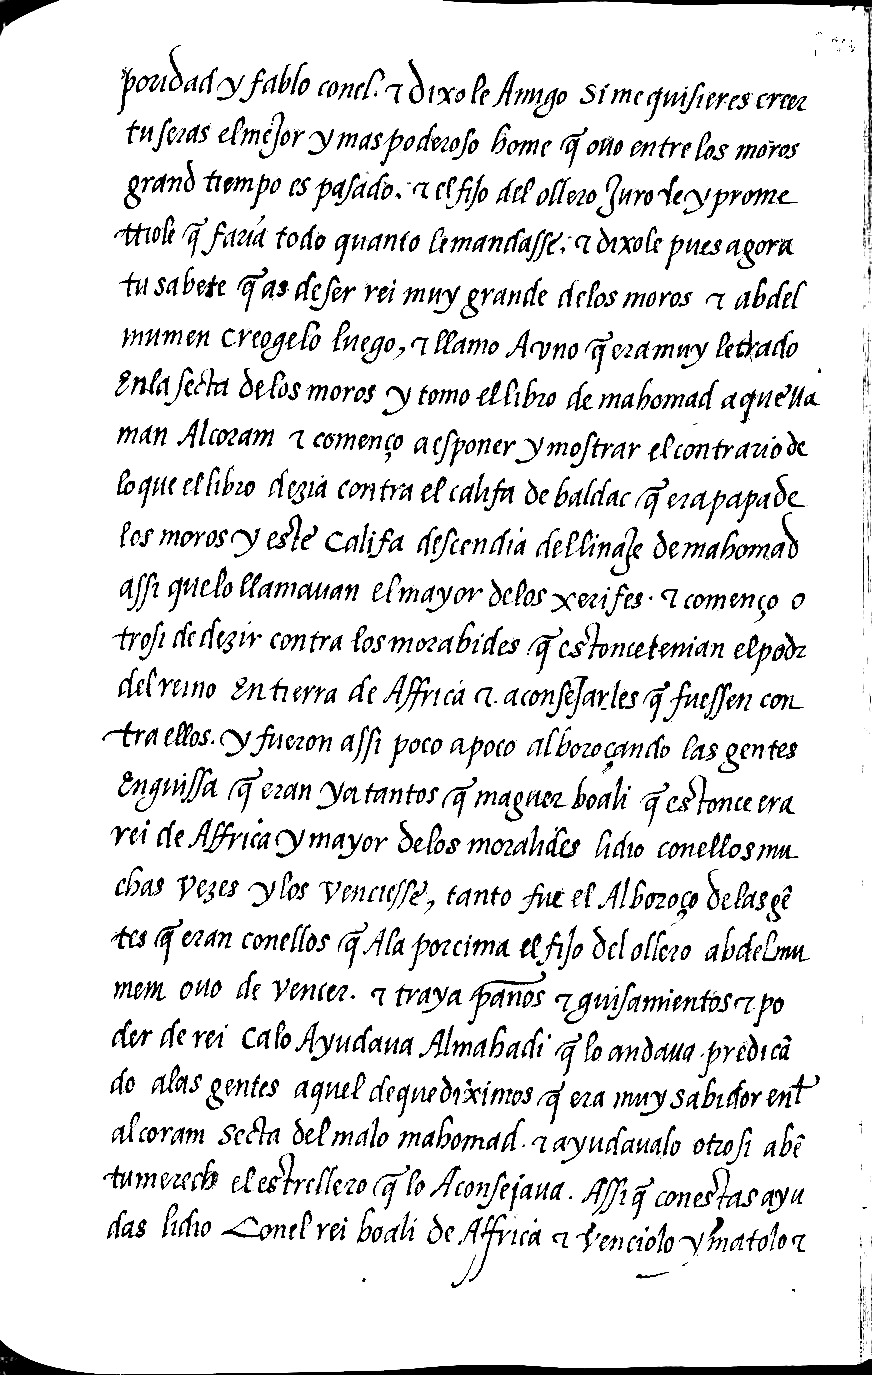 poridad y fablo conel. τ dixole Amigo si me quisieres creer
tu seras el mejor y mas poderoso home q̃ ouo entre los moros
grand tiempo es pasado. τ el fijo del ollero Juro le y prome
ttiole q̃ faria todo quanto le mandasse. τ dixole pues agora
tu sabete q̃ as de ser rei muy grande delos moros τ abdel
mumen creogelo luego, τ llamo A vno q̃ era muy letrado
Enla secta de los moros y tomo el libro de mahomad a que lla
man Alcoram τ començo a esponer y mostrar el contrario de
lo que el libro dezia contra el califa de baldac q̃ era papa de
los moros y este Califa descendia del linaje de mahomad
assi que lo llamauan el mayor delos xerifes. τ començo o
trosi de dezir contra los morabides q̃ estonce tenian el podr
del reino En tierra de Affrica τ. aconsejarles q̃ fuessen con
tra ellos. y fueron assi poco a poco alboroçando las gentes
Enguissa q̃ eran ya tantos q̃ maguer boali q̃ estonce era
rei de Affrica y mayor delos morabides lidio conellos mu
chas vezes y los venciesse, tanto fue el Alboroço delas gẽ
tes q̃ eran conellos q̃ Ala porcima el fijo del ollero abdelmu
mem ouo de vencer. τ traya paños τ guisamientos τ po
der de rei Ca lo Ayudaua Almahadi q̃ lo andaua predicã
do alas gentes aquel de que diximos q̃ era muy sabidor en l
alcoram secta del malo mahomad. τ ayudaualo otrosi abẽ
tumerech el estrellero q̃ lo Aconsejaua. Assi q̃ con estas ayu
das lidio Conel rei boali de Affrica τ venciolo y matolo τ